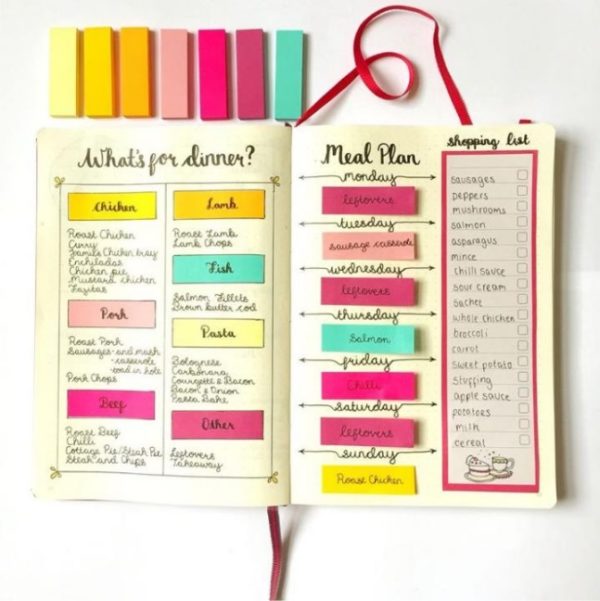 What's for dinner?
Chicken
Roast Chicken
Curry
Chicken tray
Enchiladas
Chicken pie
Mustard chicken
Fajitas
Pork
Roast Pork
Sausages - and mash
- casserole
- toad in hole
Pork Chops
Beef
Roast Beef
Chilli
Cottage Pie/Steak Pie
Steak and Chips
Lamb
Roast Lamb
Lamb Chops
Fish
Salmon Fillets
Brown butter cod
Pasta
Bolognese
Carbonara
Courgette & Bacon
Bacon & Onion
Pasta Bake
Other
Leftovers
Takeaway
Meal Plan
monday
leftovers
tuesday
sausage casserole
wednesday
leftovers
thursday
Salmon
friday
Chilli
saturday
leftovers
sunday
Roast Chicken
shopping list
sausages
peppers
mushrooms
salmon
asparagus
mince
chilli sauce
sour cream
sachet
whole chicken
broccoli
carrot
sweet potato
stuffing
apple sauce
potatoes
milk
cereal